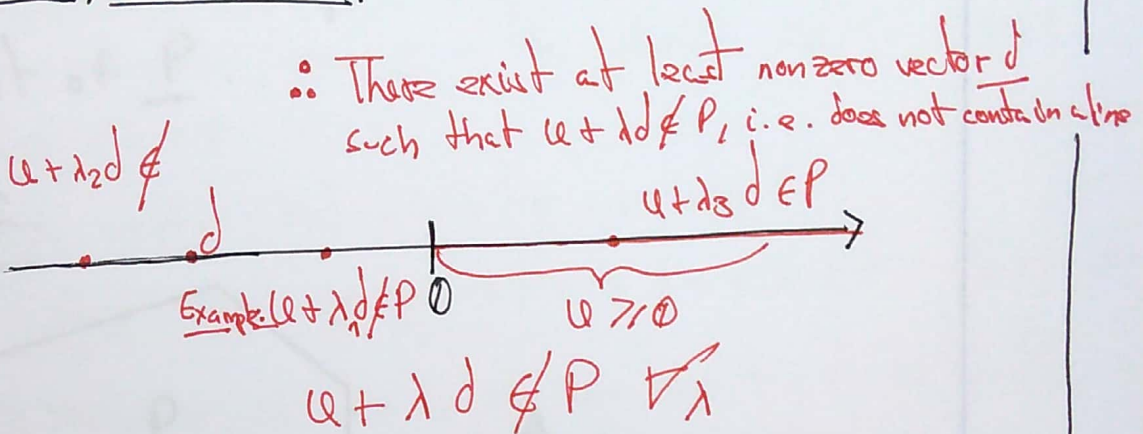 ∴ There exist at least nonzero vector d
such that u + λd ∉ P, i.e. does not contain a line
u + λ₂d ∉
u + λ₃ d ∈ P
d
Example: u + λ₁d ∉ P 0
u ≥ 0
u + λ d ∉ P ∀λ